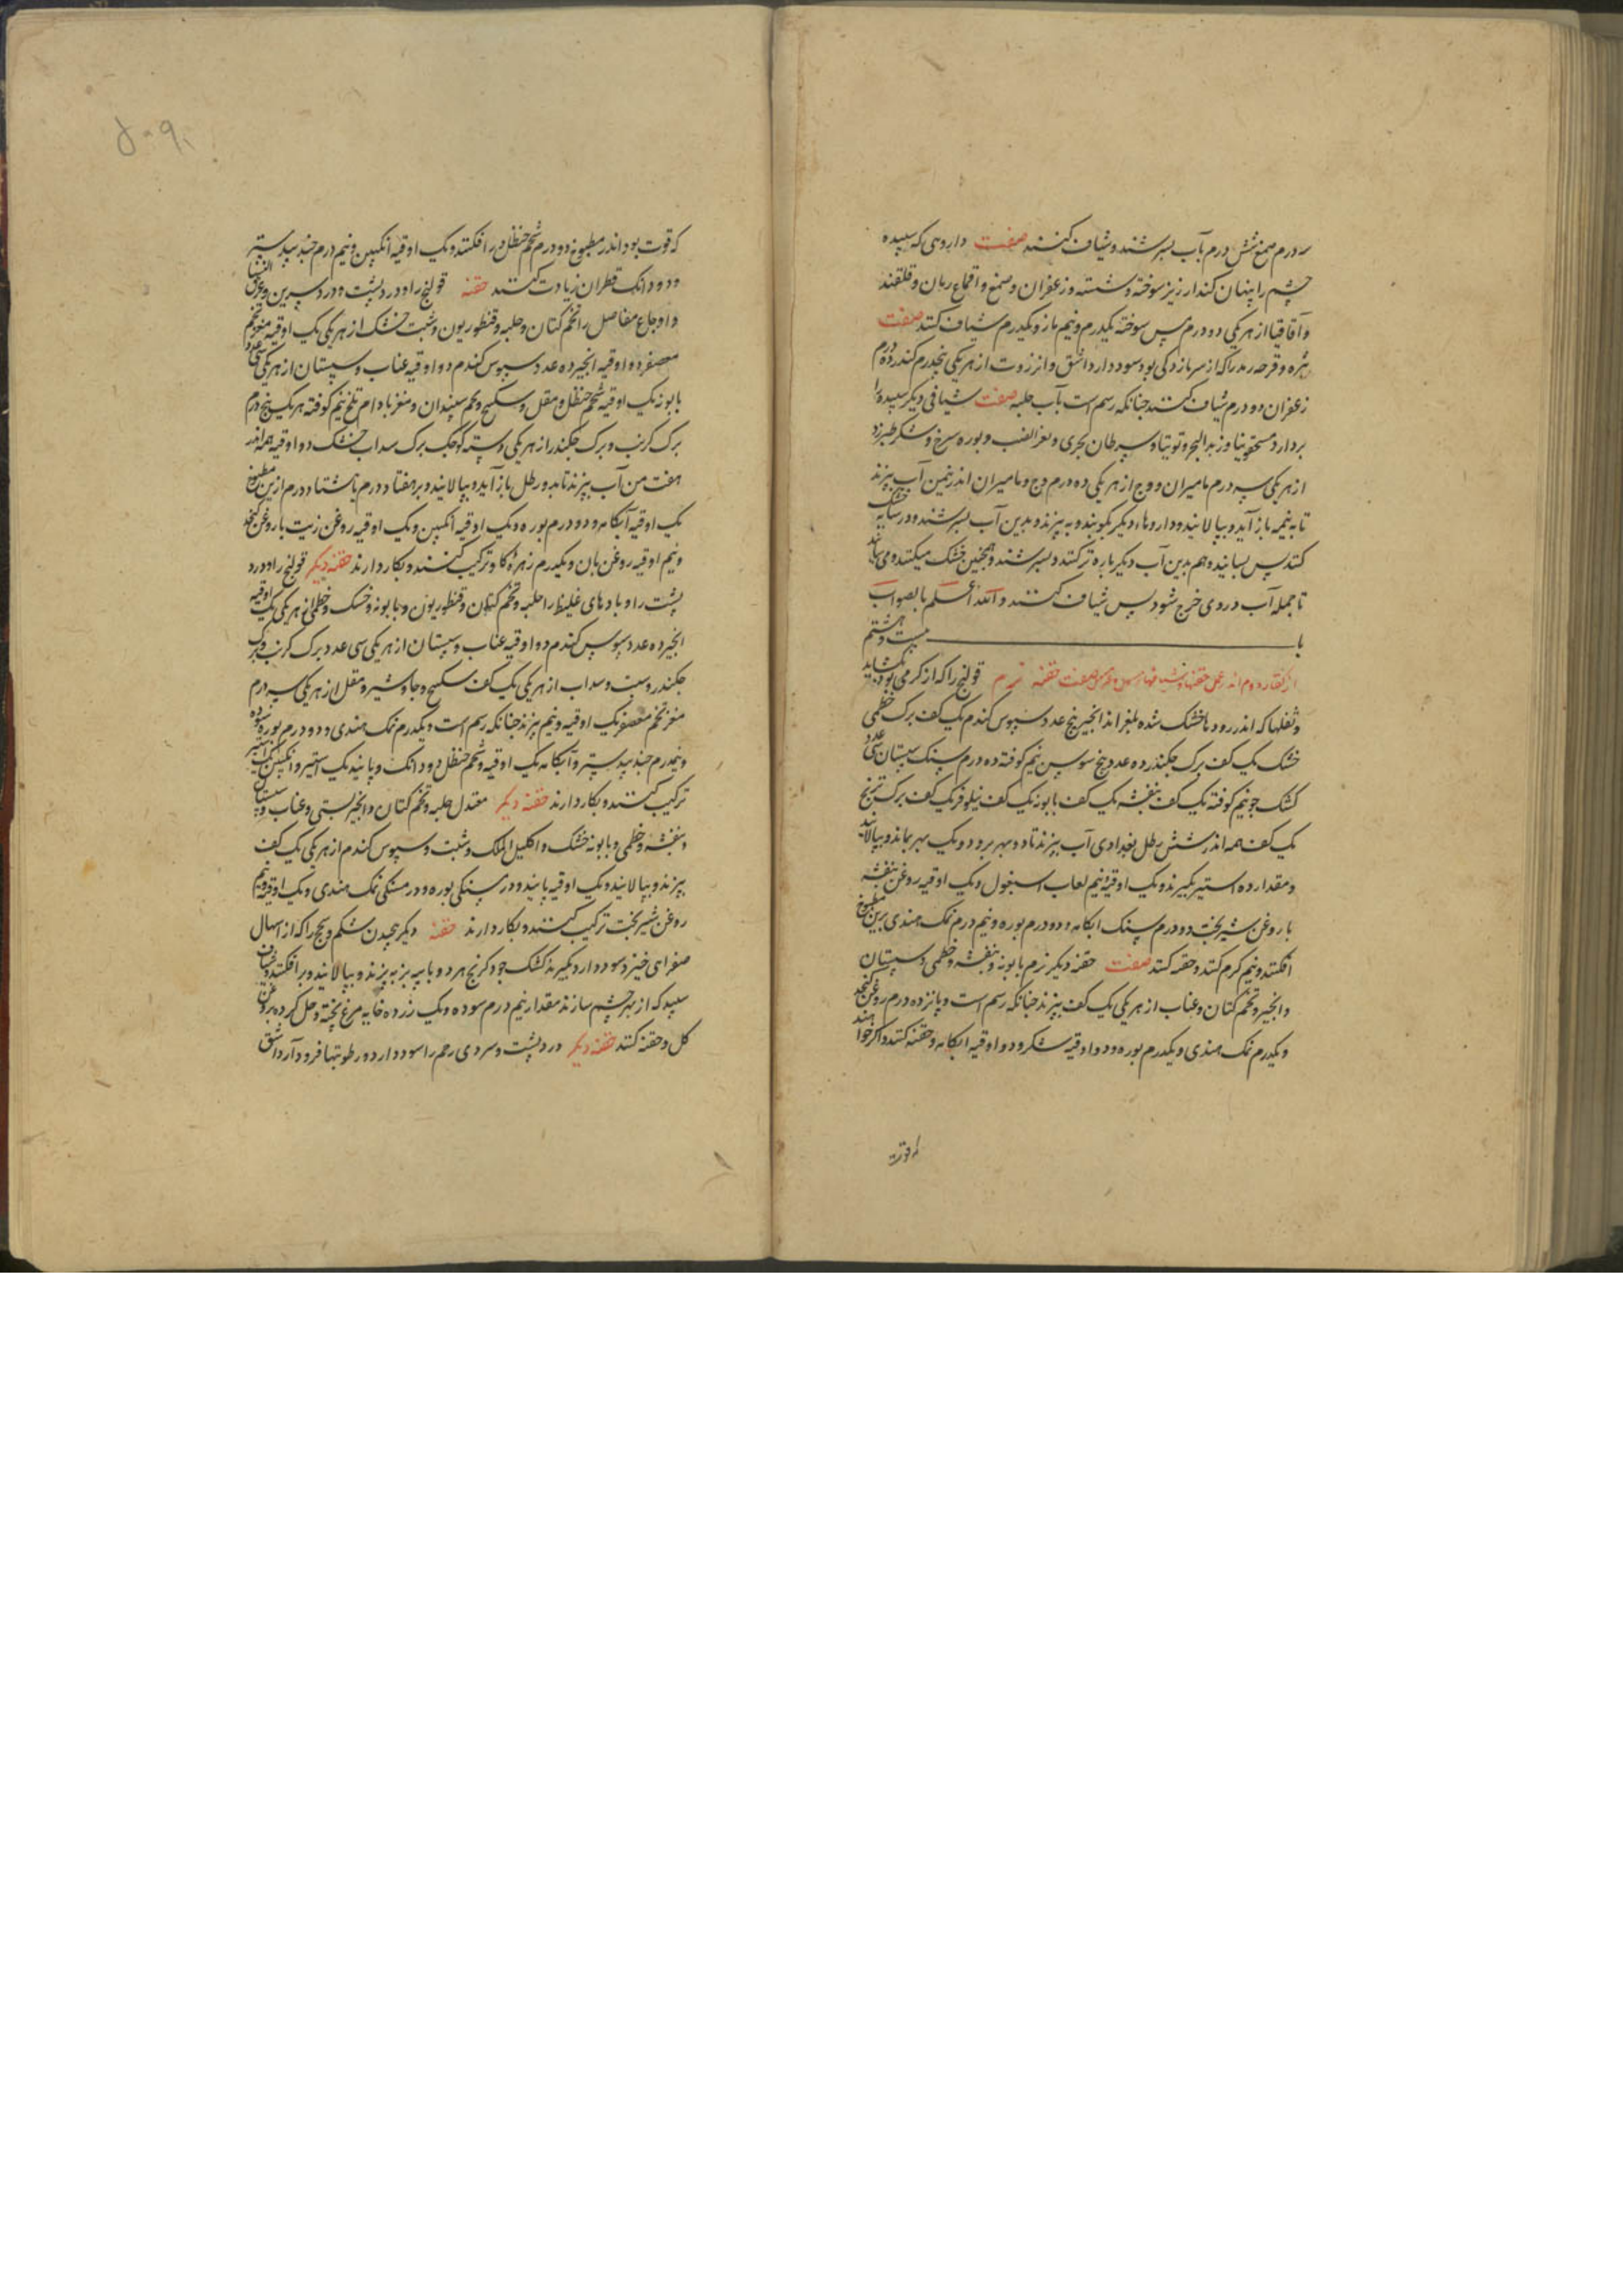 درم صمغ شش درم بآب بسرشند و شیاف کنند صفت داروی که سپیده
چشم را پنهان کند ارزیز سوخته و شسته و زعفران و صمغ و اقماع رمان و قلقند
و آقاقیا از هر یکی دو درم مس سوخته یکدرم و نیم مازو یکدرم شیاف کنند صفت
بثره و قرحه رمد را که از سر باز کی بود سود دارد اشق و انزروت از هر یکی پنجدرم کندر ده درم
زعفران دو درم شیاف کنند چنانکه رسم است بآب حلبه صفت شیافی دیگر سپیده را
بردارد مسحقونیا و زبد البحر و توتیا و سرطان بحری و بعر الضب و بوره سرخ و شکر طبرزد
از هر یکی سه درم مامیران و وج از هر یکی ده درم وج و مامیران اندر نیم من آب بپزند
تا به نیمه باز آید و بپالایند و داروها دیگر بکوبند و به بیزند و بدین آب بسرشند و در سایه خشک
کنند پس بسایند و هم بدین آب دیگر باره تر کنند و بسرشند و همچنین خشک میکنند و می سایند
تا جمله آب در وی خرج شود پس شیاف کنند والله أعلم بالصواب
با بیست و هشتم
از گفتار دوم اندر عمل حقنها و شیافها صفت حقنه نرم قولنج را که از گرمی بود بگشاید
و ثفلها که اندر رودها خشک شده بلغزاند انجیر پنج عدد سپوس گندم یک کف برک خطمی
خشک یک کف برک چکندر ده عدد بیخ سوسن نیم کوفته ده درم سنک سپستان سی عدد
کشک جو نیم کوفته یک کف بنفشه یک کف بابونه یک کف نیلوفر یک کف برک ترنج
یک کف همه اندر شش رطل بغدادی آب بپزند تا دو بهر برود و یک بهر بماند و بپالایند
و مقدار ده استیر بگیرند و یک اوقیه و نیم لعاب اسبغول و یک اوقیه روغن بنفشه
با روغن شیر پخت دو درم سنک ابکامه و دو درم بوره و نیم درم نمک هندی برین مطبوخ
افکنند و نیم گرم کنند و حقنه کنند صفت حقنه دیگر نرم بابونه و بنفشه و خطمی و سپستان
و انجیر و تخم کتان و عناب از هر یکی یک کف بپزند چنانکه رسم است و پانزده درم روغن کنجد
و یکدرم نمک هندی و یکدرم بوره و دو اوقیه شکر و دو اوقیه ابکامه و حقنه کنند و اکر خواهند
که قوت
که قوت بود اندر مطبوخ دو درم شحم حنظل در افکنند و یک اوقیه انکبین و نیم درم جند بیدستر
و دو دانک قطران زیادت کنند حقنه قولنج را و درد پشت و درد سرین و عرق النسا
و اوجاع مفاصل را تخم کتان و حلبه و قنطوریون و شبت خشک از هر یکی یک اوقیه مغز تخم
معصفر ده اوقیه انجیر ده عدد سپوس گندم دو اوقیه عناب و سپستان از هر یکی سی عدد
بابونه یک اوقیه شحم حنظل و مقل و سکبینج و تخم سپندان و مغز بادام تلخ نیم کوفته هر یک پنج درم
برک کرنب و برک چکندر از هر یکی دسته کوچک برک سداب خشک دو اوقیه همه اندر
هفت من آب بپزند تا بدو رطل باز آید و بپالایند و بر هفتاد درم تا هشتاد درم ازین مطبوخ
یک اوقیه آبکامه و دو درم بوره و یک اوقیه انکبین و یک اوقیه روغن زیت با روغن کنجد
و نیم اوقیه روغن بان و یکدرم زهره گاو ترکیب کنند و بکار دارند حقنه دیگر قولنج را و درد
پشت را و بادهای غلیظ را حلبه و تخم کتان و قنطوریون و بابونه و خسک و خطمی از هر یکی یک اوقیه
انجیر ده عدد سپوس گندم دو اوقیه عناب و سپستان از هر یکی سی عدد برک کرنب و برک
چکندر و شبت و سداب از هر یکی یک کف سکبینج و جاوشیر و مقل از هر یکی سه درم
مغز تخم معصفر یک اوقیه و نیم بپزند چنانکه رسم است و یکدرم نمک هندی و دو درم بوره سوده
و نیمدرم جند بیدستر و آبکامه یک اوقیه و شحم حنظل دو دانک و پانید یک استیر و انکبین یک استیر
ترکیب کنند و بکار دارند حقنه دیگر معتدل حلبه و تخم کتان و انجیر بستی و عناب و سپستان
و بنفشه و خطمی و بابونه خشک و اکلیل الملک و شبت و سپوس گندم از هر یکی یک کف
بپزند و بپالایند و یک اوقیه پانید و درم سنکی بوره و درم سنکی نمک هندی و یک اوقیه و نیم
روغن شیر پخت ترکیب کنند و بکار دارند حقنه دیگر پیچیدن شکم و سحج را که از اسهال
صفرای خیزد سود دارد بگیرند کشک جو و کرنج هر دو با پیه بز بپزند و بپالایند و برافکنند و شیاف
سپید که از بهر چشم سازند مقدار نیم درم سوده و یک زرده خایه مرغ پخته و حل کرده بروغن
کل و حقنه کنند حقنه دیگر درد پشت و سردی رحم را سود دارد و رطوبتها فرود آرد اشق